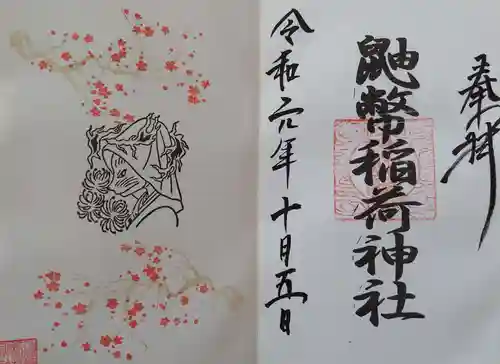 奉拝
鼬幣稲荷神社
令和元年十月五日